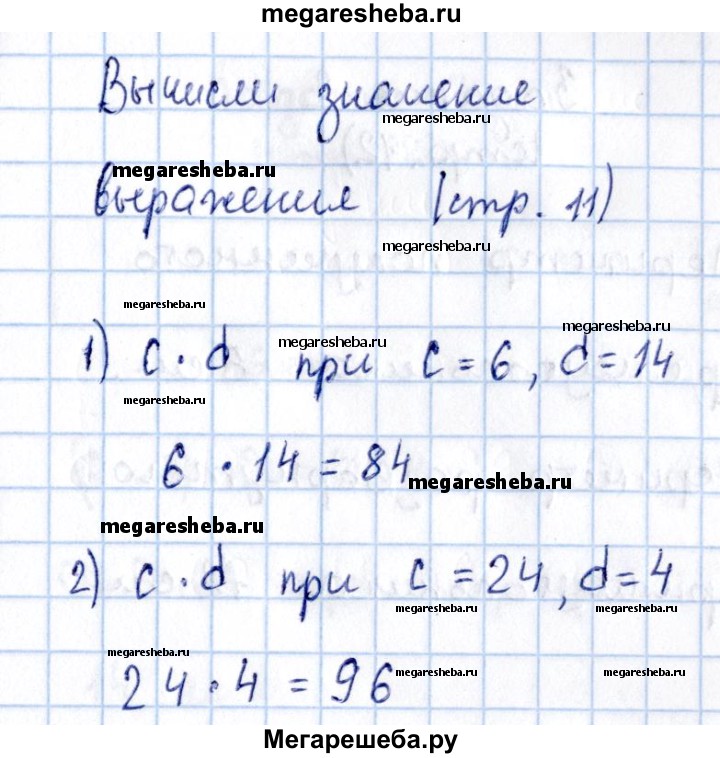 megaresheba.ru
Вычисли значение
megaresheba.ru
megaresheba.ru
выражения (стр. 11)
megaresheba.ru
megaresheba.ru
megaresheba.ru
megaresheba.ru
1) c · d при c = 6, d = 14
megaresheba.ru
6 · 14 = 84
megaresheba.ru
megaresheba.ru
2) c · d при c = 24, d = 4
megaresheba.ru megaresheba.ru
megaresheba.ru
24 · 4 = 96
megaresheba.ru megaresheba.ru
Мегарешеба.ру